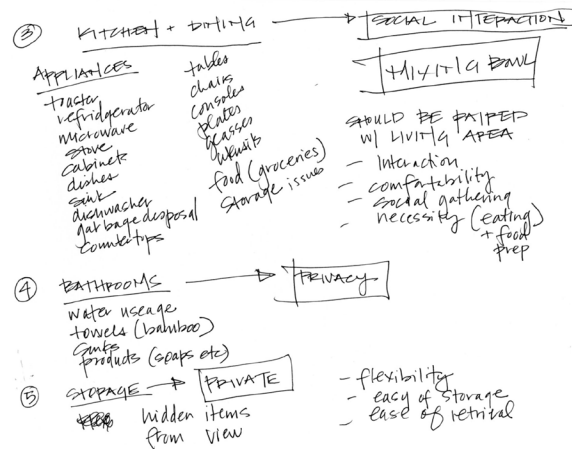 ③ KITCHEN + DINING → SOCIAL INTERACTION
MIXING BOWL
APPLIANCES
toaster
refridgerator
microwave
stove
cabinets
dishes
sink
dishwasher
garbage disposal
countertops
tables
chairs
consoles
plates
glasses
utensils
food (groceries)
storage issues
SHOULD BE PAIRED
W/ LIVING AREA
- Interaction
- comfortability
- social gathering
- necessity (eating)
+ food
prep
④ BATHROOMS → PRIVACY
water useage
towels (bamboo)
sinks
products (soaps etc)
⑤ STORAGE → PRIVATE
hidden items
from view
- flexibility
- easy of storage
- ease of retrival